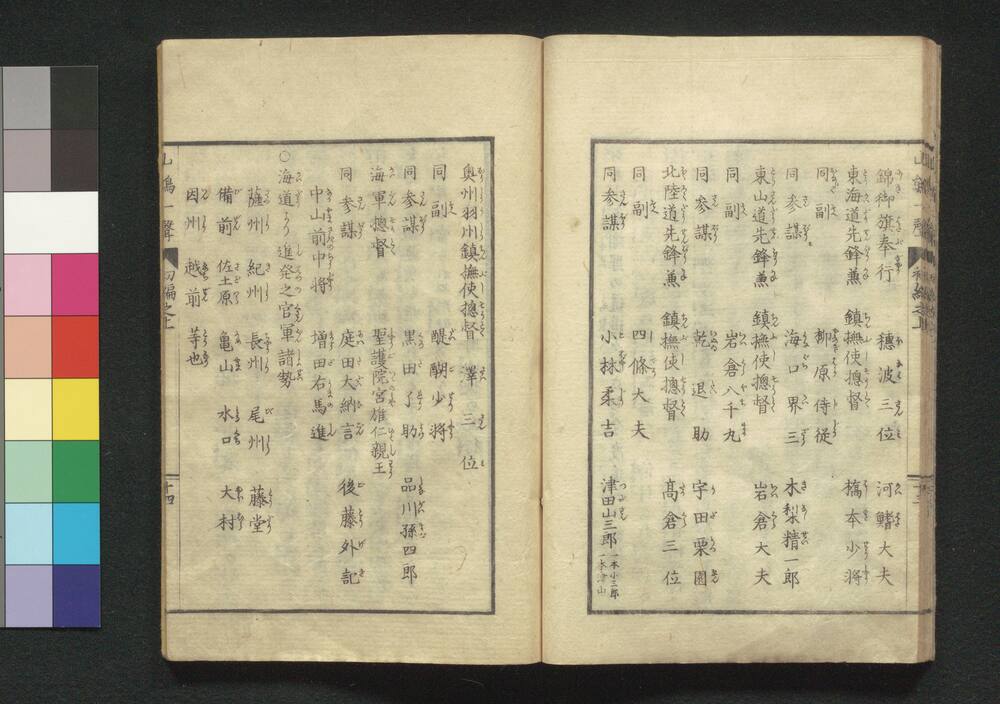 錦御旗奉行 穗波三位 河鰭大夫
東海道先鋒兼 鎮撫使摠督 橋本少將
同副 柳原侍從
同參謀 海口界三 木梨精一郎
東山道先鋒兼 鎮撫使摠督 岩倉大夫
同副 岩倉八千丸
同參謀 乾退助 宇田栗園
北陸道先鋒兼 鎮撫使摠督 髙倉三位
同副 四條大夫
同參謀 小林柔吉 津田山三郎 一本小三郎 一本津山
奥州羽州鎮撫使摠督 澤三位
同副 醍醐少將
同參謀 黒田了助 品川孫四郎
海軍摠督 聖護院宮雄仁親王
同參謀 庭田大納言 後藤外記
中山前中将 増田右馬進
○海道より進発之官軍諸勢
薩州 紀州 長州 尾州 藤堂
備前 佐土原 亀山 水口 大村
因州 越前 等也
山鵑一聲 初編之上 十四